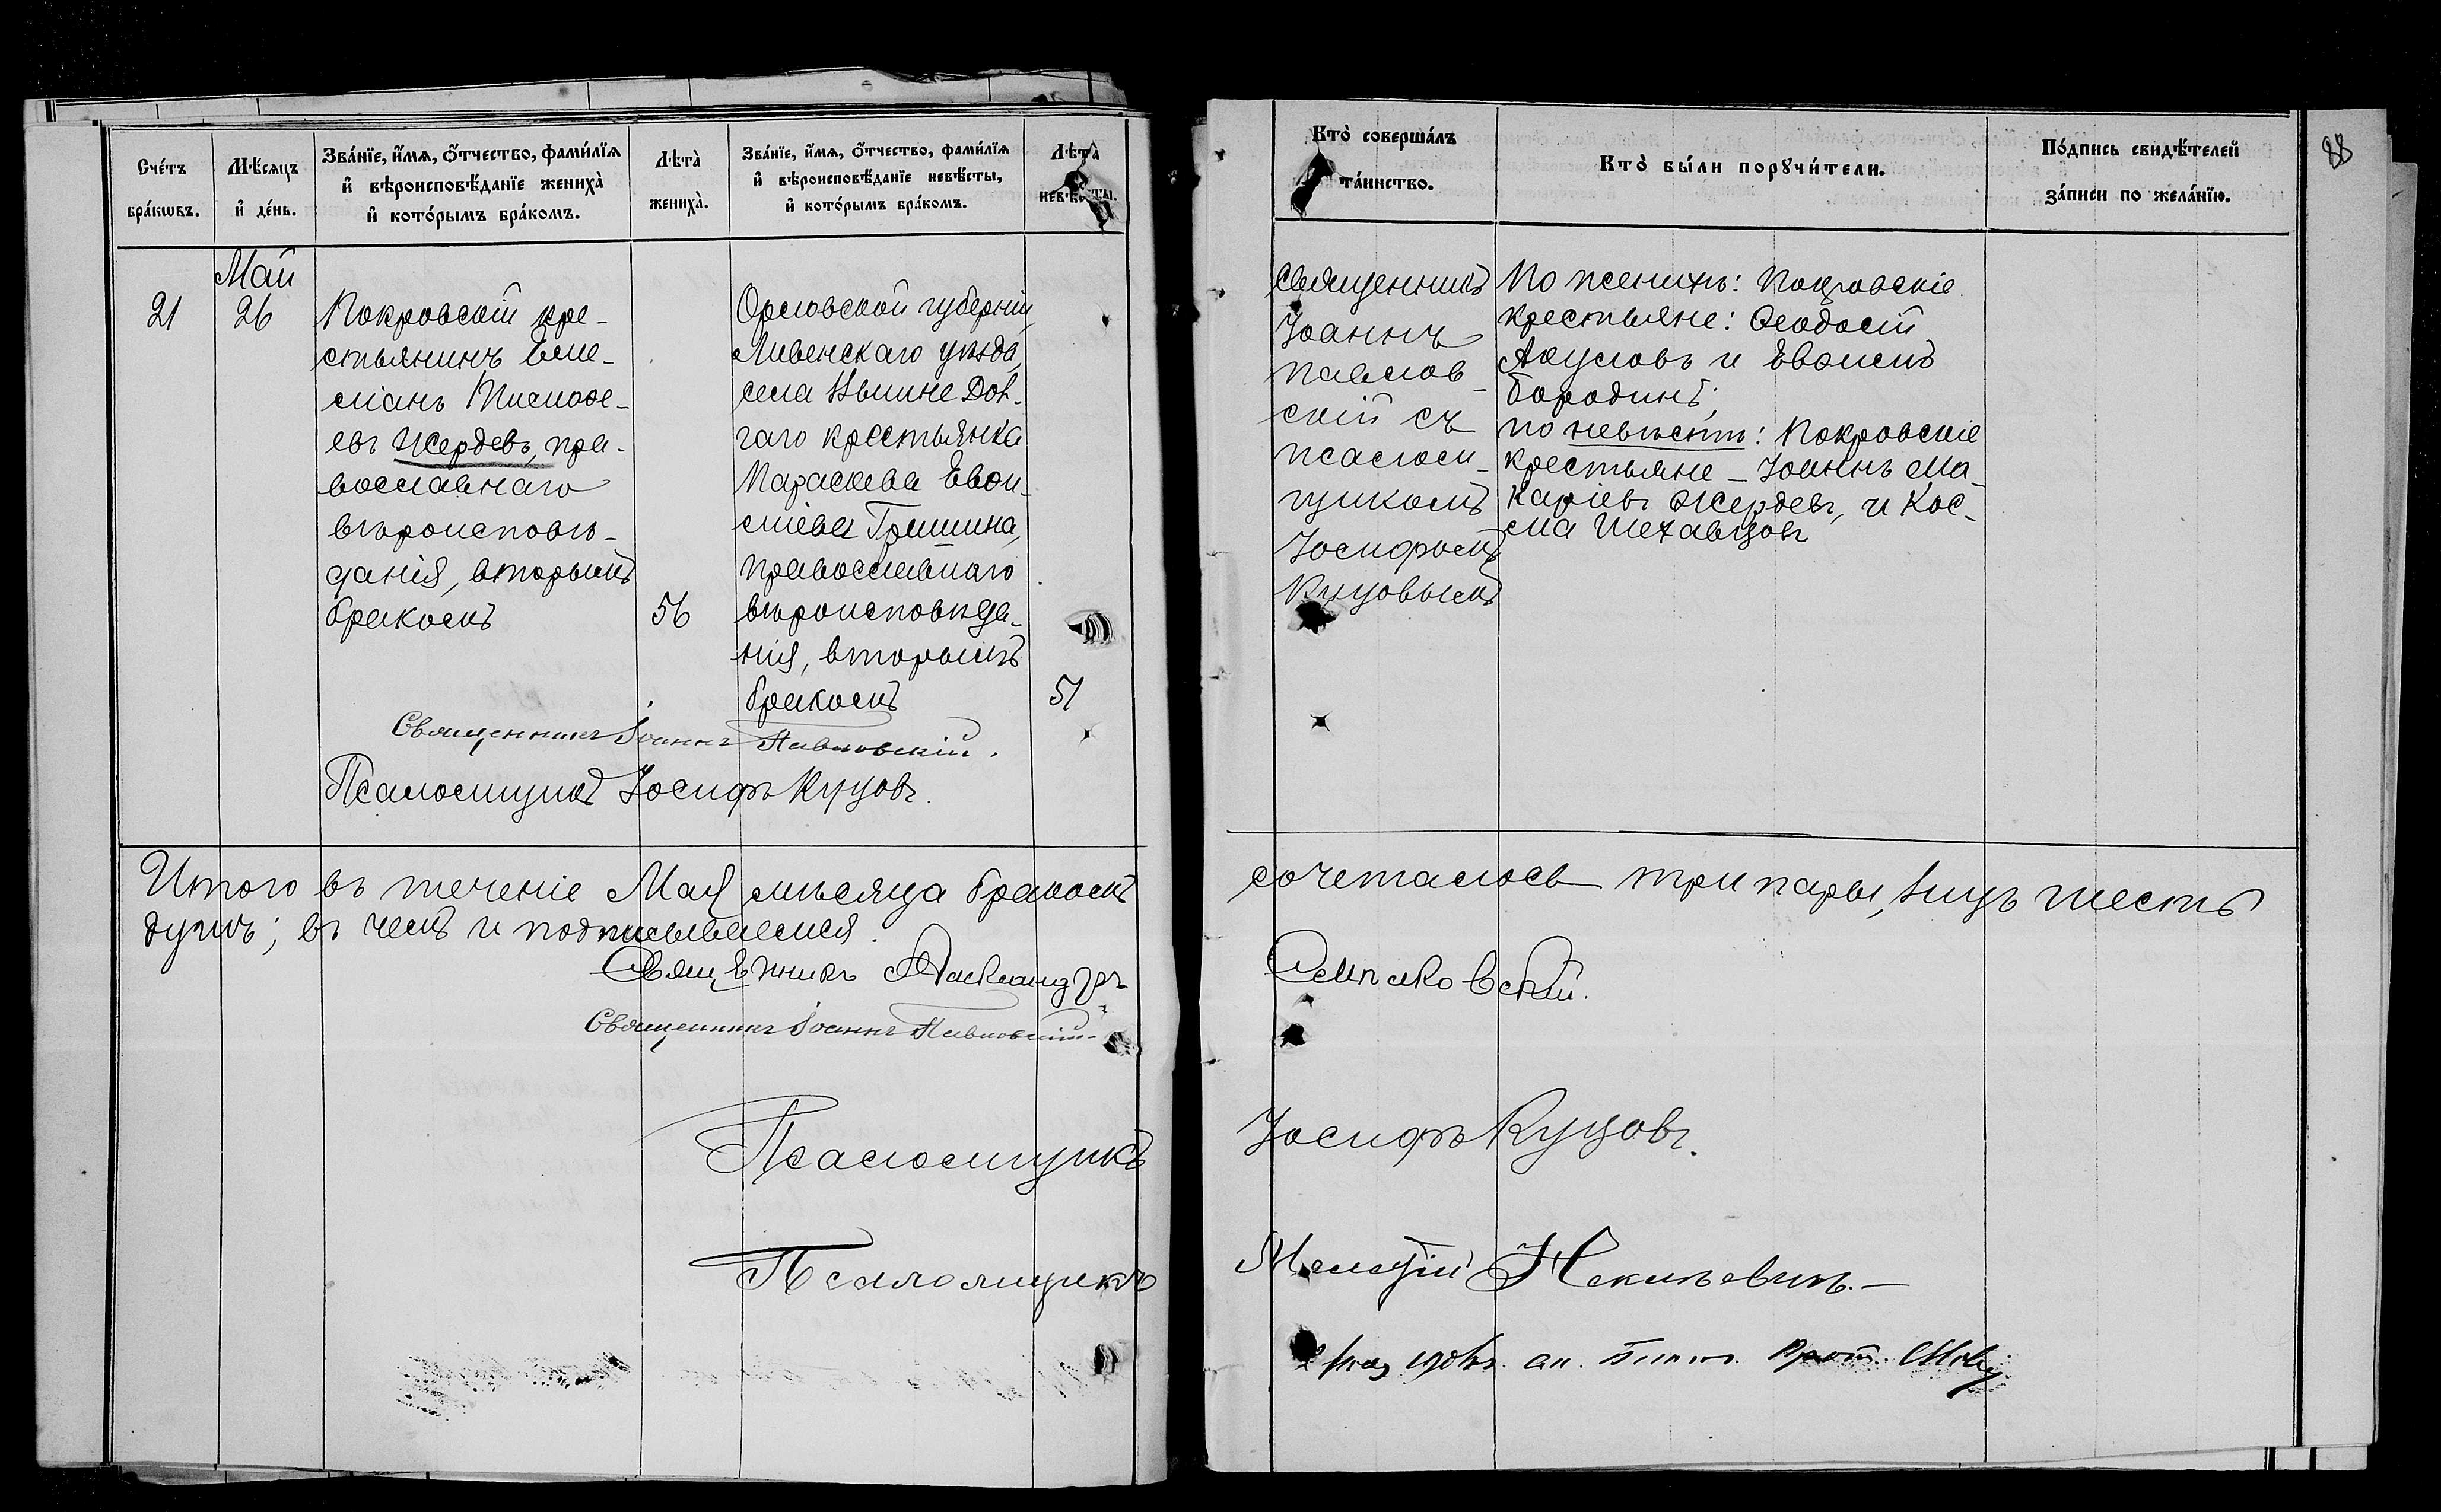 Счéтъ брáкωвъ.
Мѣ́сяцъ и҆ дéнь.
Звáнїе, и҆́мѧ, ѻ҆́тчество, фами́лїѧ
и҆ вѣроисповѣ́данїе женихà
и҆ котóрымъ брáкомъ.
Лѣтà женихà.
Звáнїе, и҆́мѧ, ѻ҆́тчество, фами́лїѧ
и҆ вѣроисповѣ́данїе невѣ́сты,
и҆ котóрымъ брáкомъ.
Лѣтà невѣ́сты.
Ктò совершáлъ
тáинство.
Ктò бы́ли порꙋчи́тели.
Пóдпись свидѣ́телей
зáписи по желáнїю.
88
Май
21
26
Покровскій кре-
стьянинъ Еме-
ліанъ Тимофе-
евъ Жердевъ, пра-
вославнаго
вѣроисповѣ-
данія, вторымъ
бракомъ
56
Орловской губерніи,
Ливенскаго уѣзда,
села Дол-
гаго крестьянка
Параскева Евѳи-
міева Гришина,
православнаго
вѣроисповѣда-
нія, вторымъ
бракомъ
51
Священникъ
Іоаннъ
Павлов-
скій съ
псалом-
щикомъ
Іосифомъ
Куцовымъ
По женихѣ: Покровскіе
крестьяне: Ѳеодосій
Акуловъ и Евѳимъ
Бородинъ;
по невѣстѣ: Покровскіе
крестьяне – Іоаннъ Ма-
каріевъ Жердевъ, и Кос-
ма Шехавцовъ
Священникъ Іоаннъ Павловскій.
Псаломщикъ Іосифъ Куцовъ.
Итого въ теченіе Мая мѣсяца бракомъ сочеталось три пары, лицъ шесть
душъ; въ чемъ и подписываемся.
Священникъ Александръ Семпковскій.
Священникъ Іоаннъ Павловскій.
Псаломщикъ Іосифъ Куцовъ.
Псаломщикъ